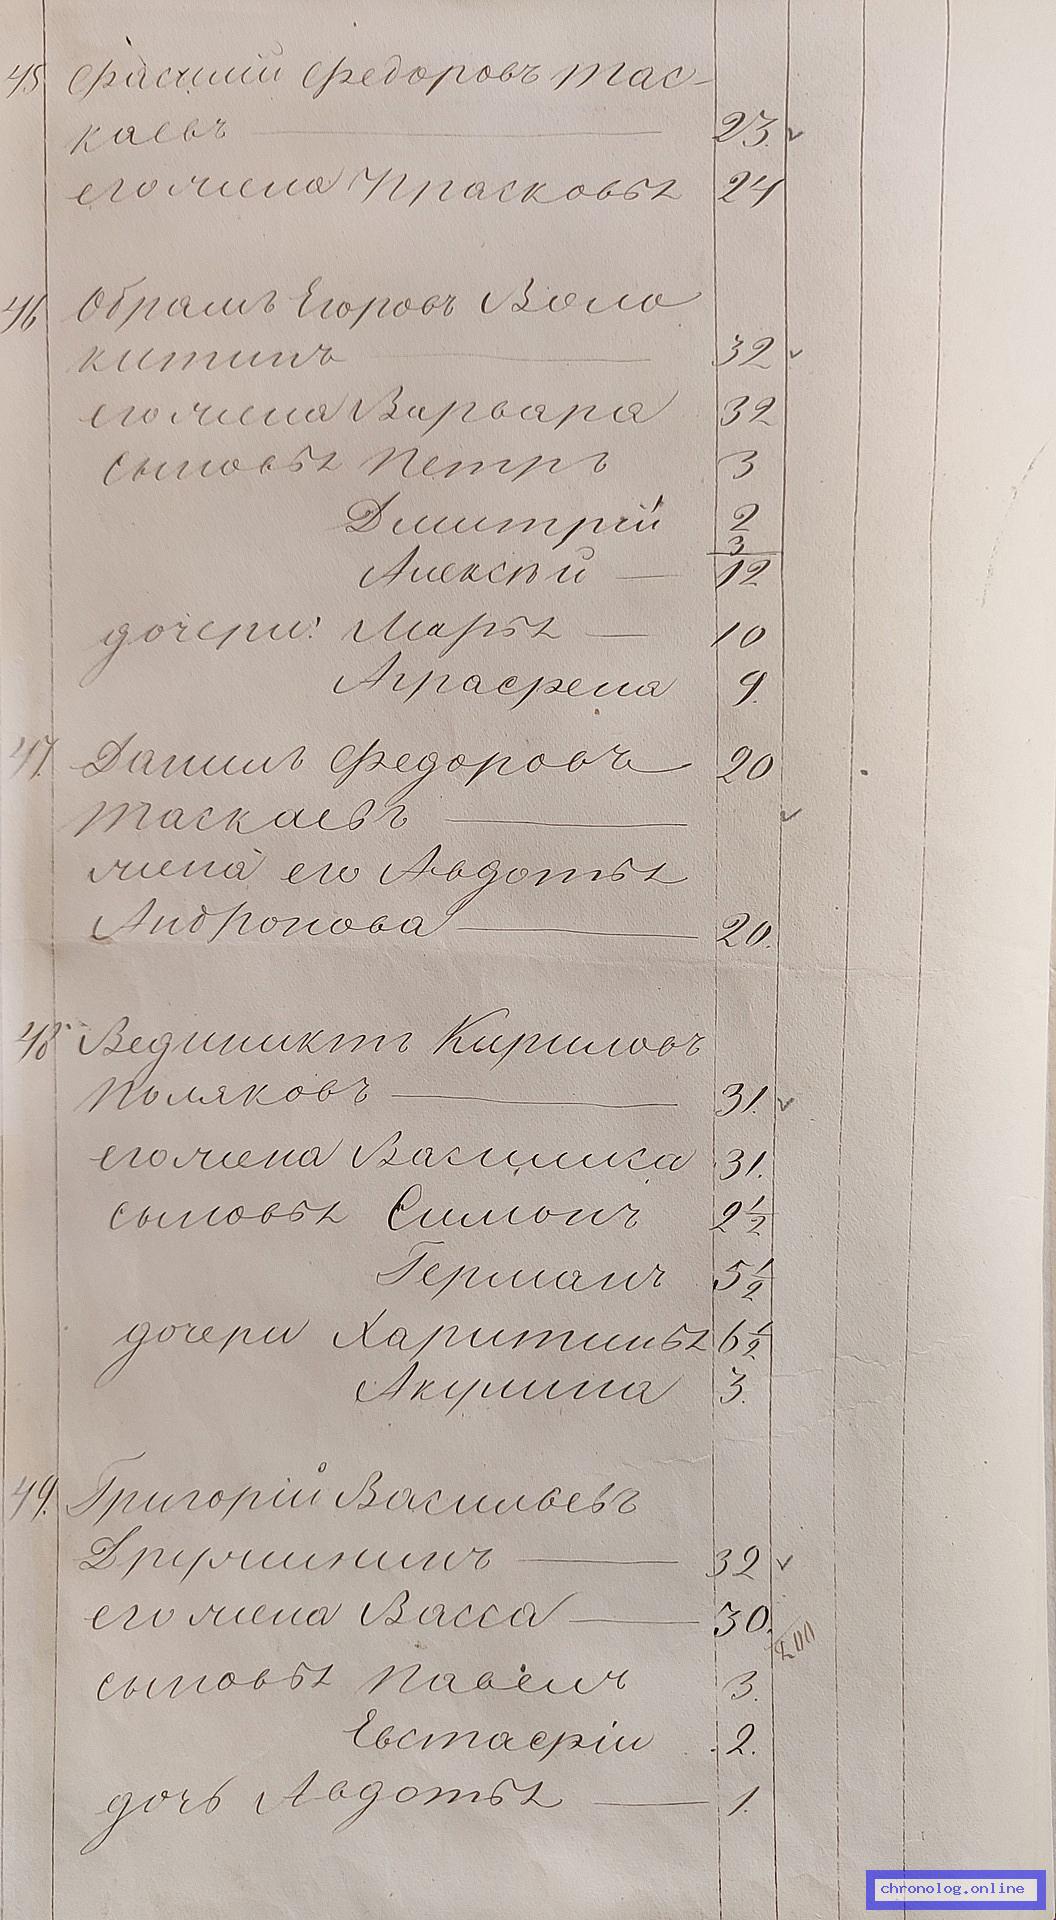 45 Фасилiй Федоровъ Тас-
каевъ 23.
его жена Прасковья 24
46 Обрамъ Егоровъ Воло
китинъ 32
его жена Варвара 32
сыновья Петръ 3
Дмитрій 2
3
Алексѣй 12
дочери: Марья 10
Аграфена 9.
47. Данилъ Федоровъ 20
Таскаевъ
жена его Авдотья
Андронова 20.
48 Вединиктъ Кириловъ
Поляковъ 31.
его жена Василиса 31.
сыновья Симонъ 2 1/2
Германъ 5 1/2
дочери Харитинья 6 1/2
Акулина 3.
49. Григорій Васильевъ
Дружининъ 32
его жена Васса 30.
200
сыновья Павелъ 3.
Евстафiи 2.
дочь Авдотья 1.
chronolog.online